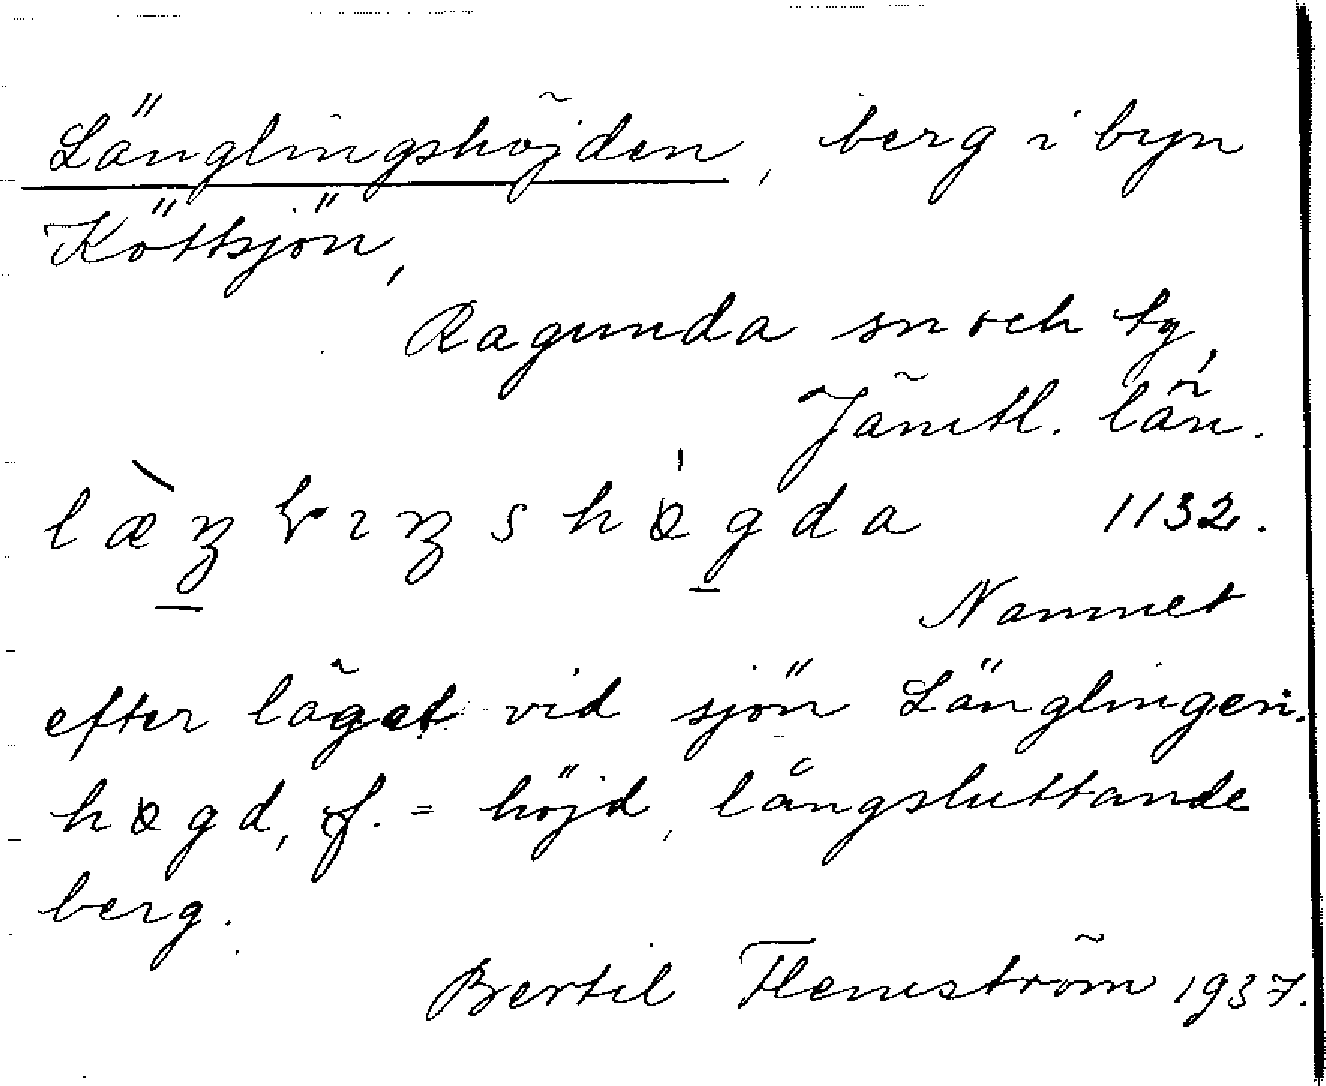 Länglingshöjden, berg i byn
Köttsjön,
Ragunda sn och tg,
Jämtl. län.
1132.
Namnet
efter läget vid sjön Länglingen.
högd, f. = höjd, långsluttande
berg.
Bertil Flemström 1937.